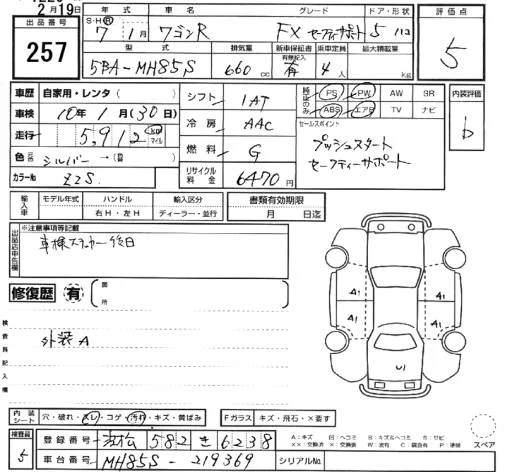 2月19日
出品番号 257
年式 車名 グレード ドア・形状 評価点
S・H・R 7年 1月 ワゴンR FX セーフティサポート 5 ハコ 5
型式 排気量 新車保証書 乗車定員 最大積載量
有無記入
5BA-MH85S 660 cc 有 4人 kg
車歴 自家用・レンタ( )
シフト 1AT
PS PW AW SR 内装評価
車検 10年 1月 (30日)
ABS エアB TV ナビ b
冷房 AAC
走行 5,912 km マイル
セールスポイント
プッシュスタート
色 シルバー→( )
燃料 G
セーフティーサポート
カラーNo Z2S
リサイクル料金 6470円
輸入車 モデル年式 ハンドル 輸入区分 書類有効期限
右H・左H ディーラー・並行 月 日迄
出品店申告欄 ※注意事項等記載
車検ステッカー後日
修復歴 有 箇所
検査員記入欄
外装A
A1 A1
A1 A1
U1
内装シート 穴・破れ・スレ・コゲ・汚れ・キズ・黄ばみ Fガラス キズ・飛石・×要す
検査員 5
登録番号 浜松 582 き 6238
A:キズ
スペア
車台番号 MH85S-219369 シリアルNo.